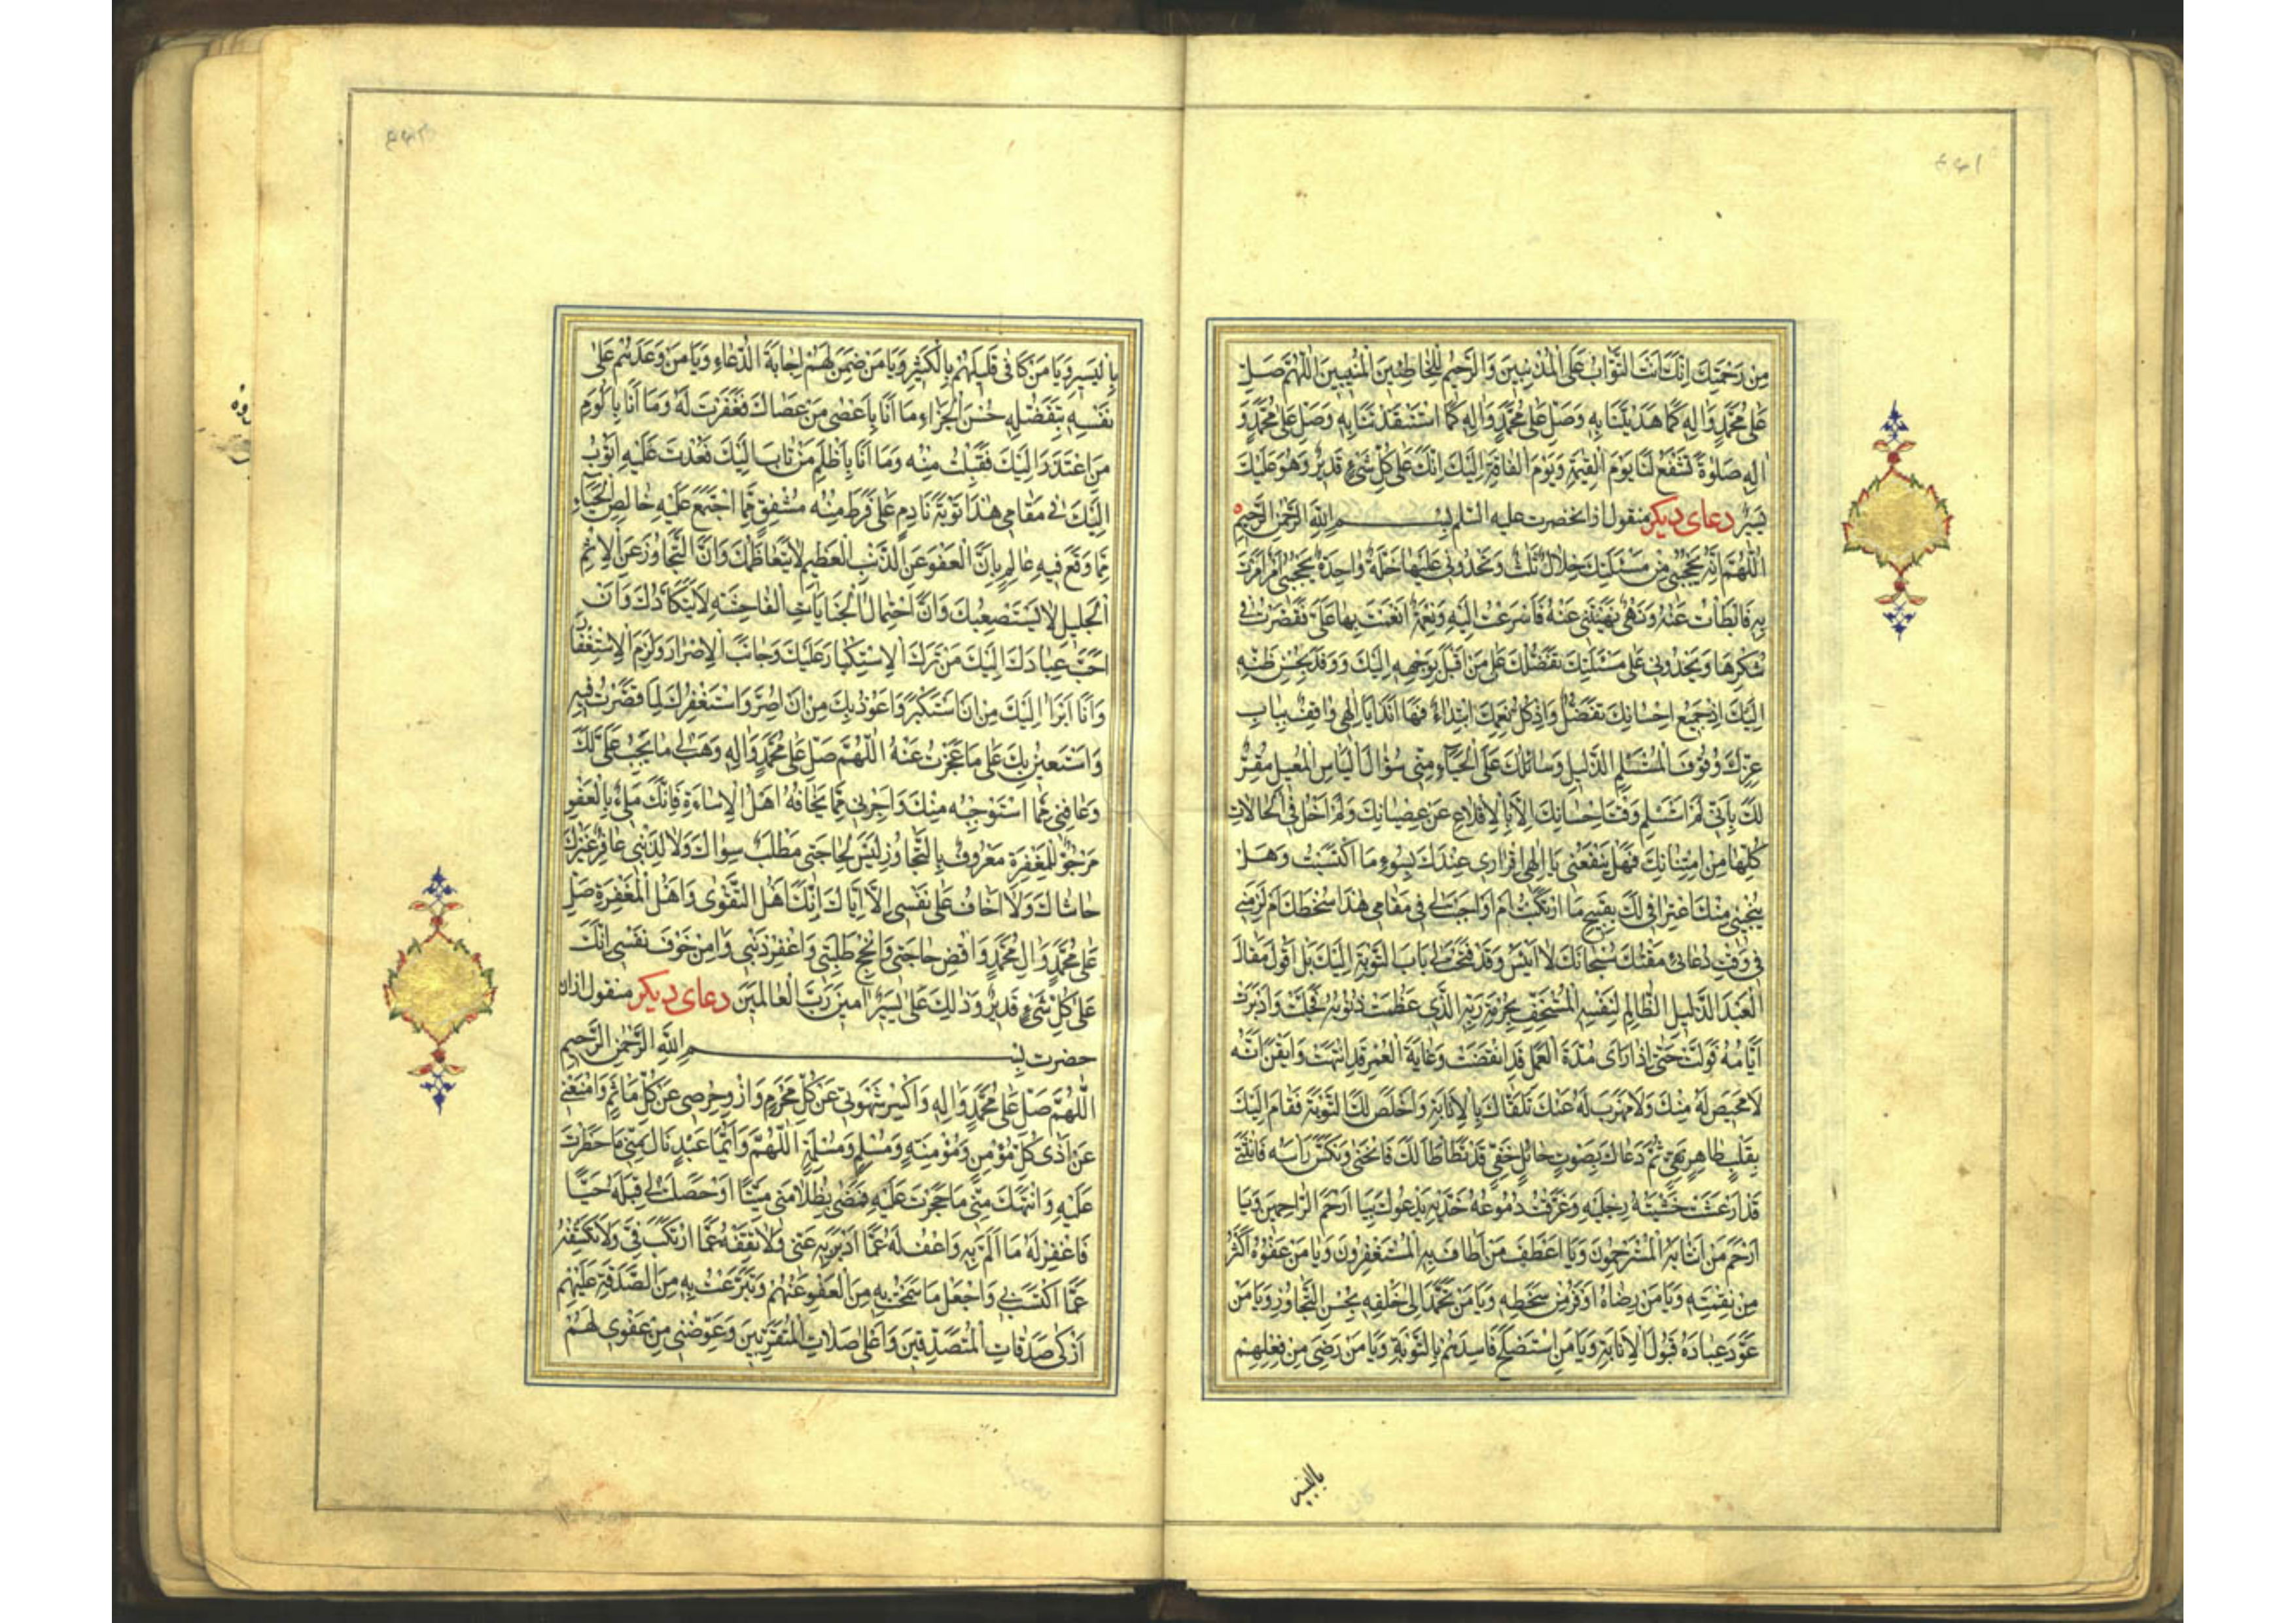 ۴۶۱
مِنْ رَحْمَتِكَ اِنَّكَ اَنْتَ التَّوَّابُ عَلَى الْمُذْنِبينَ وَالرَّحيمُ لِلْخاطِئينَ الْمُنيبينَ اَللّهُمَّ صَلِّ
عَلى مُحَمَّدٍ وَالِهِ كَما هَدَيْتَنا بِهِ وَصَلِّ عَلى مُحَمَّدٍ وَالِهِ كَمَا اسْتَنْقَذْتَنا بِهِ وَصَلِّ عَلى مُحَمَّدٍ وَ
الِهِ صَلوةً تَشْفَعُ لَنا يَوْمَ الْقِيمَةِ وَيَوْمَ الْفاقَةِ اِلَيْكَ اِنَّكَ عَلى كُلِّ شَيْءٍ قَديرٌ وَهُوَ عَلَيْكَ
يَسيرٌ دعاى ديكر منقول ازانحضرت عليه السّلم بِسْمِ اللهِ الرَّحْمنِ الرَّحيمِ
اَللّهُمَّ اِنَّهُ يَحْجُبُنى مِنْ مَسْئَلَتِكَ خِلالٌ ثَلثٌ وَتَحْدُونى عَلَيْها خَلَّةٌ واحِدَةٌ يَحْجُبُنى اَمْرٌ اَمَرْتَ
بِهِ فَاَبْطَاْتُ عَنْهُ وَنَهْىٌ نَهَيْتَنى عَنْهُ فَاَسْرَعْتُ اِلَيْهِ وَنِعْمَةٌ اَنْعَمْتَ بِها عَلَىَّ فَقَصَّرْتُ فى
شُكْرِها وَيَحْدُونى عَلى مَسْئَلَتِكَ تَفَضُّلُكَ عَلى مَنْ اَقْبَلَ بِوَجْهِهِ اِلَيْكَ وَوَفَدَ بِحُسْنِ ظَنِّهِ
اِلَيْكَ اِذْ جَميعُ اِحْسانِكَ تَفَضُّلٌ وَاِذْ كُلُّ نِعَمِكَ ابْتِداءٌ فَها اَنَا ذا يا اِلهى واقِفٌ بِبابِ
عِزِّكَ وُقُوفَ الْمُسْتَسْلِمِ الذَّليلِ وَسائِلُكَ عَلَى الْحَياءِ مِنّى سُؤالَ الْبائِسِ الْمُعيلِ مُقِرٌّ
لَكَ بِاَنّى لَمْ اَسْتَسْلِمْ وَقْتَ اِحْسانِكَ اِلّا بِالْاِقْلاعِ عَنْ عِصْيانِكَ وَلَمْ اَخْلُ فِى الْحالاتِ
كُلِّها مِنِ امْتِنانِكَ فَهَلْ يَنْفَعُنى يا اِلهى اِقْرارى عِنْدَكَ بِسُوءِ مَا اكْتَسَبْتُ وَهَلْ
يُنْجينى مِنْكَ اعْتِرافى لَكَ بِقَبيحِ مَا ارْتَكَبْتُ اَمْ اَوْجَبْتَ لى فى مَقامى هذا سُخْطَكَ اَمْ لَزِمَنى
فى وَقْتِ دُعائى مَقْتُكَ سُبْحانَكَ لا اَيْئَسُ وَقَدْ فَتَحْتَ لى بابَ التَّوْبَةِ اِلَيْكَ بَلْ اَقُولُ مَقالَ
الْعَبْدِ الذَّليلِ الظّالِمِ لِنَفْسِهِ الْمُسْتَخِفِّ بِحُرْمَةِ رَبِّهِ الَّذى عَظُمَتْ ذُنُوبُهُ فَجَلَّتْ وَاَدْبَرَتْ
اَيّامُهُ فَوَلَّتْ حَتّى اِذا رَاى مُدَّةَ الْعَمَلِ قَدِ انْقَضَتْ وَغايَةَ الْعُمْرِ قَدِ انْتَهَتْ وَاَيْقَنَ اَنَّهُ
لا مَحيصَ لَهُ مِنْكَ وَلا مَهْرَبَ لَهُ عَنْكَ تَلَقّاكَ بِالْاِنابَةِ وَاَخْلَصَ لَكَ التَّوْبَةَ فَقامَ اِلَيْكَ
بِقَلْبٍ طاهِرٍ نَقِىٍّ ثُمَّ دَعاكَ بِصَوْتٍ حائِلٍ خَفِىٍّ قَدْ تَطَاْطَاَ لَكَ فَانْحَنى وَنَكَّسَ رَاْسَهُ فَانْثَنى
قَدْ اَرْعَشَتْ خَشْيَتُهُ رِجْلَيْهِ وَغَرَّقَتْ دُمُوعُهُ خَدَّيْهِ يَدْعُوكَ بِيا اَرْحَمَ الرّاحِمينَ وَيا
اَرْحَمَ مَنِ انْتابَهُ الْمُسْتَرْحِمُونَ وَيا اَعْطَفَ مَنْ اَطافَ بِهِ الْمُسْتَغْفِرُونَ وَيا مَنْ عَفْوُهُ اَكْثَرُ
مِنْ نِقْمَتِهِ وَيا مَنْ رِضاهُ اَوْفَرُ مِنْ سَخَطِهِ وَيا مَنْ تَحَمَّدَ اِلى خَلْقِهِ بِحُسْنِ التَّجاوُزِ وَيا مَنْ
عَوَّدَ عِبادَهُ قَبُولَ الْاِنابَةِ وَيا مَنِ اسْتَصْلَحَ فاسِدَهُمْ بِالتَّوْبَةِ وَيا مَنْ رَضِىَ مِنْ فِعْلِهِمْ
باليسير
بِالْيَسيرِ وَيا مَنْ كافى قَليلَهُمْ بِالْكَثيرِ وَيا مَنْ ضَمِنَ لَهُمْ اِجابَةَ الدُّعاءِ وَيا مَنْ وَعَدَهُمْ عَلى
نَفْسِهِ بِتَفَضُّلِهِ حُسْنَ الْجَزاءِ ما اَنَا بِاَعْصى مَنْ عَصاكَ فَغَفَرْتَ لَهُ وَما اَنَا بِاَلْوَمِ
مَنِ اعْتَذَرَ اِلَيْكَ فَقَبِلْتَ مِنْهُ وَما اَنَا بِاَظْلَمِ مَنْ تابَ اِلَيْكَ فَعُدْتَ عَلَيْهِ اَتُوبُ
اِلَيْكَ فى مَقامى هذا تَوْبَةَ نادِمٍ عَلى ما فَرَطَ مِنْهُ مُشْفِقٍ مِمَّا اجْتَمَعَ عَلَيْهِ خالِصِ الْحَياءِ
مِمّا وَقَعَ فيهِ عالِمٍ بِاَنَّ الْعَفْوَ عَنِ الذَّنْبِ الْعَظيمِ لا يَتَعاظَمُكَ وَاَنَّ التَّجاوُزَ عَنِ الْاِثْمِ
الْجَليلِ لا يَسْتَصْعِبُكَ وَاَنَّ احْتِمالَ الْجِناياتِ الْفاحِشَةِ لا يَتَكَاَّدُكَ وَاَنَّ
اَحَبَّ عِبادِكَ اِلَيْكَ مَنْ تَرَكَ الْاِسْتِكْبارَ عَلَيْكَ وَجانَبَ الْاِصْرارَ وَلَزِمَ الْاِسْتِغْفارَ
وَاَنَا اَبْرَاُ اِلَيْكَ مِنْ اَنْ اَسْتَكْبِرَ وَاَعُوذُ بِكَ مِنْ اَنْ اُصِرَّ وَاَسْتَغْفِرُكَ لِما قَصَّرْتُ فيهِ
وَاَسْتَعينُ بِكَ عَلى ما عَجَزْتُ عَنْهُ اَللّهُمَّ صَلِّ عَلى مُحَمَّدٍ وَالِهِ وَهَبْ لى ما يَجِبُ عَلَىَّ لَكَ
وَعافِنى مِمّا اَسْتَوْجِبُهُ مِنْكَ وَاَجِرْنى مِمّا يَخافُهُ اَهْلُ الْاِساءَةِ فَاِنَّكَ مَلِىءٌ بِالْعَفْوِ
مَرْجُوٌّ لِلْمَغْفِرَةِ مَعْرُوفٌ بِالتَّجاوُزِ لَيْسَ لِحاجَتى مَطْلَبٌ سِواكَ وَلا لِذَنْبى غافِرٌ غَيْرُكَ
حاشاكَ وَلا اَخافُ عَلى نَفْسى اِلّا اِيّاكَ اِنَّكَ اَهْلُ التَّقْوى وَاَهْلُ الْمَغْفِرَةِ صَلِّ
عَلى مُحَمَّدٍ وَالِ مُحَمَّدٍ وَاقْضِ حاجَتى وَاَنْجِحْ طَلِبَتى وَاغْفِرْ ذَنْبى وَامِنْ خَوْفَ نَفْسى اِنَّكَ
عَلى كُلِّ شَيْءٍ قَديرٌ وَذلِكَ عَلَيْكَ يَسيرٌ امينَ رَبَّ الْعالَمينَ دعاى ديكر منقول ازان
حضرت بِسْمِ اللهِ الرَّحْمنِ الرَّحيمِ
اَللّهُمَّ صَلِّ عَلى مُحَمَّدٍ وَالِهِ وَاكْسِرْ شَهْوَتى عَنْ كُلِّ مَحْرَمٍ وَازْوِ حِرْصى عَنْ كُلِّ مَاْثَمٍ وَامْنَعْنى
عَنْ اَذى كُلِّ مُؤْمِنٍ وَمُؤْمِنَةٍ وَمُسْلِمٍ وَمُسْلِمَةٍ اَللّهُمَّ وَاَيُّما عَبْدٍ نالَ مِنّى ما حَظَرْتَ
عَلَيْهِ وَانْتَهَكَ مِنّى ما حَجَرْتَ عَلَيْهِ فَمَضى بِظُلامَتى مَيِّتًا اَوْ حَصَلَتْ لى قِبَلَهُ حَيًّا
فَاغْفِرْ لَهُ ما اَلَمَّ بِهِ وَاعْفُ لَهُ عَمّا اَدْبَرَ بِهِ عَنّى وَلا تَقِفْهُ عَمَّا ارْتَكَبَ فِىَّ وَلا تَكْشِفْهُ
عَمَّا اكْتَسَبَ بى وَاجْعَلْ ما سَمَحْتُ بِهِ مِنَ الْعَفْوِ عَنْهُمْ وَتَبَرَّعْتُ بِهِ مِنَ الصَّدَقَةِ عَلَيْهِمْ
اَزْكى صَدَقاتِ الْمُتَصَدِّقينَ وَاَعْلى صِلاتِ الْمُتَقَرِّبينَ وَعَوِّضْنى مِنْ عَفْوى لَهُمْ